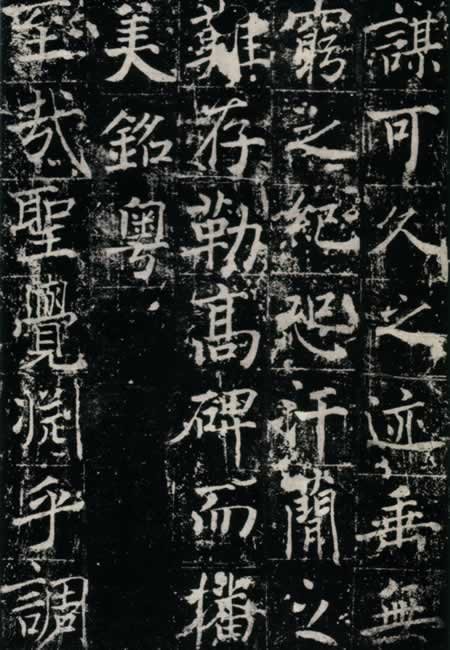 謀可久之迹垂無
窮之紀恐汗簡之
難存勒高碑而播
美銘粤
至哉聖覺淵乎調